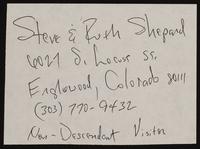 Steve & Ruth Shepard
6021 S. Locust St.
Englewood, Colorado 80111
(303) 770-9432
Non-Descendant Visitor